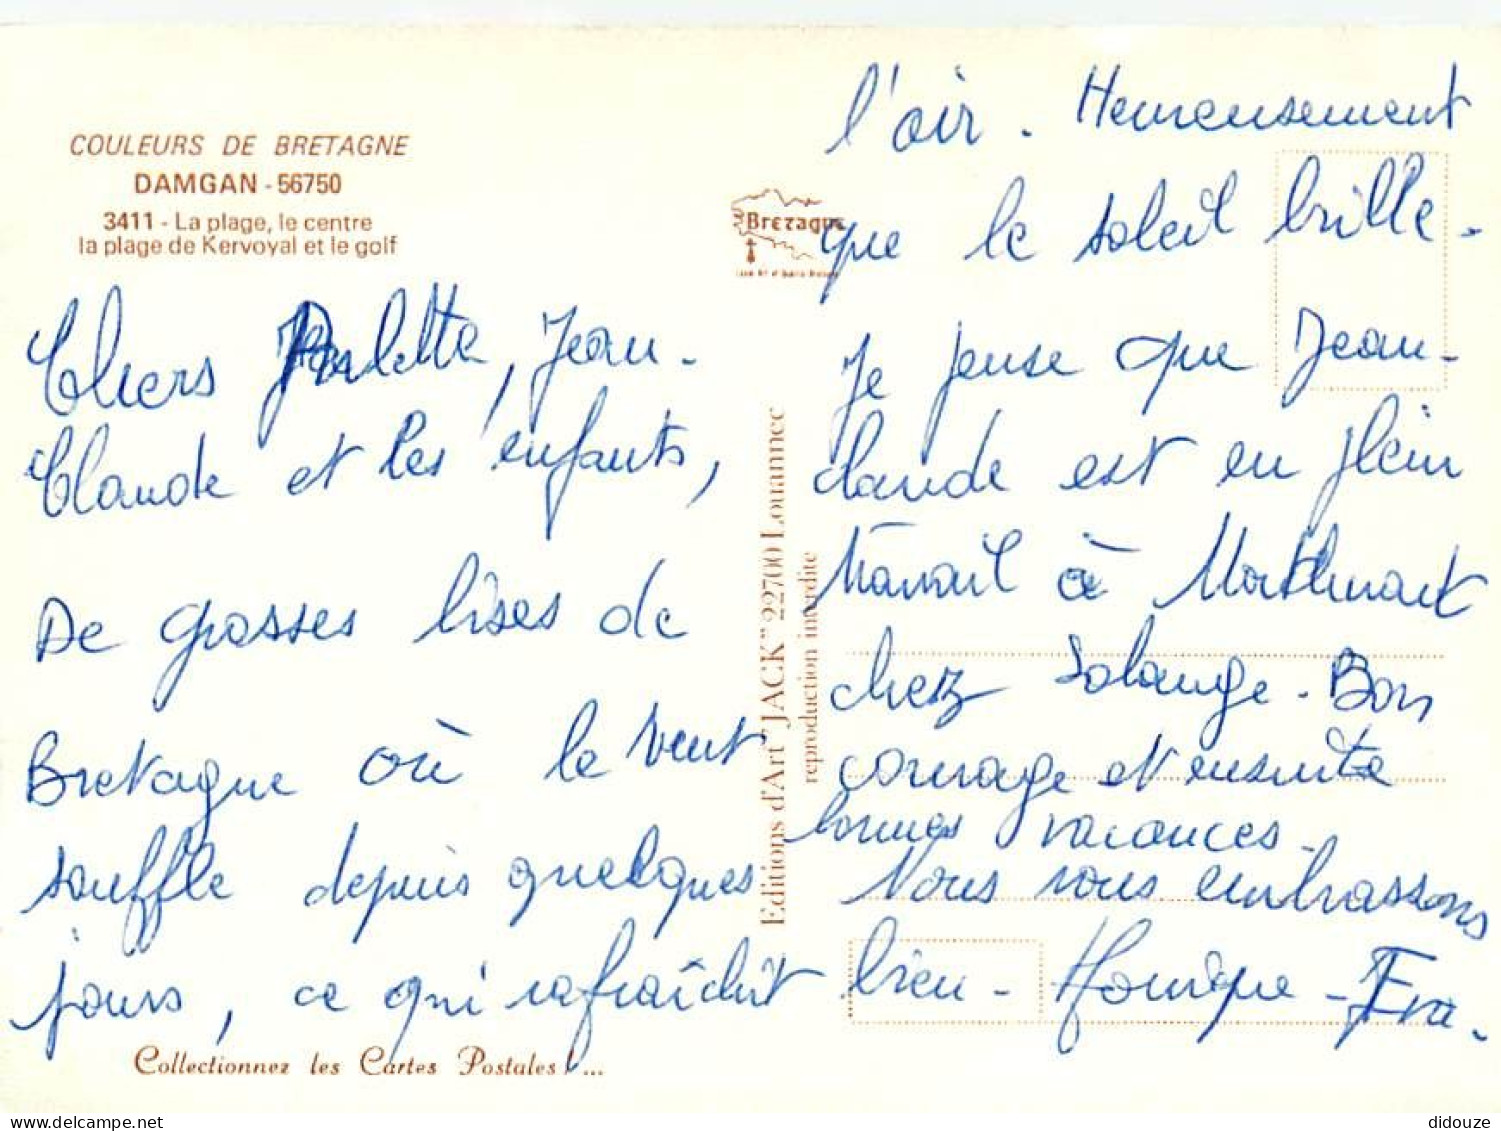 COULEURS DE BRETAGNE
DAMGAN - 56750
3411 - La plage, le centre
la plage de Kervoyal et le golf
Chers Paulette, Jean-
Claude et les enfants,
De grosses bises de
Bretagne où le vent
souffle depuis quelques
jours, ce qui rafraîchit
Collectionnez les Cartes Postales !...
Bretagne
Editions d'Art "JACK" 22700 Louannec
reproduction interdite
l'air. Heureusement
que le soleil brille.
Je pense que Jean-
claude est en plein
travail à
chez Solange - Bon
courage et ensuite
bonnes vacances.
Nous vous embrassons
bien - Monique - Eva.
didouze